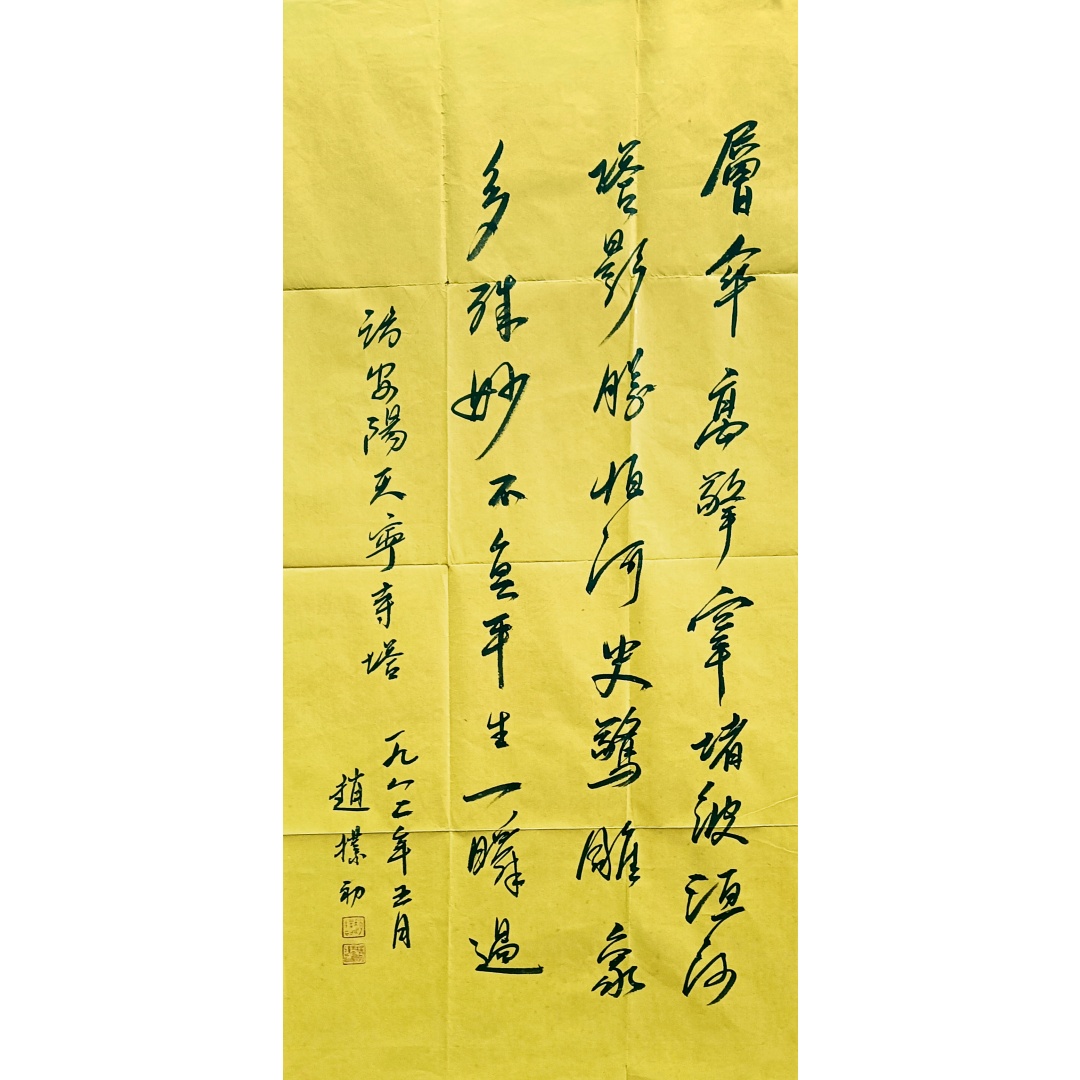 層傘高擎窣堵波洹河
塔影勝恒河更驚雕象
多殊妙不負平生一瞬過
訪安陽天寧寺塔 一九八二年五月
趙樸初